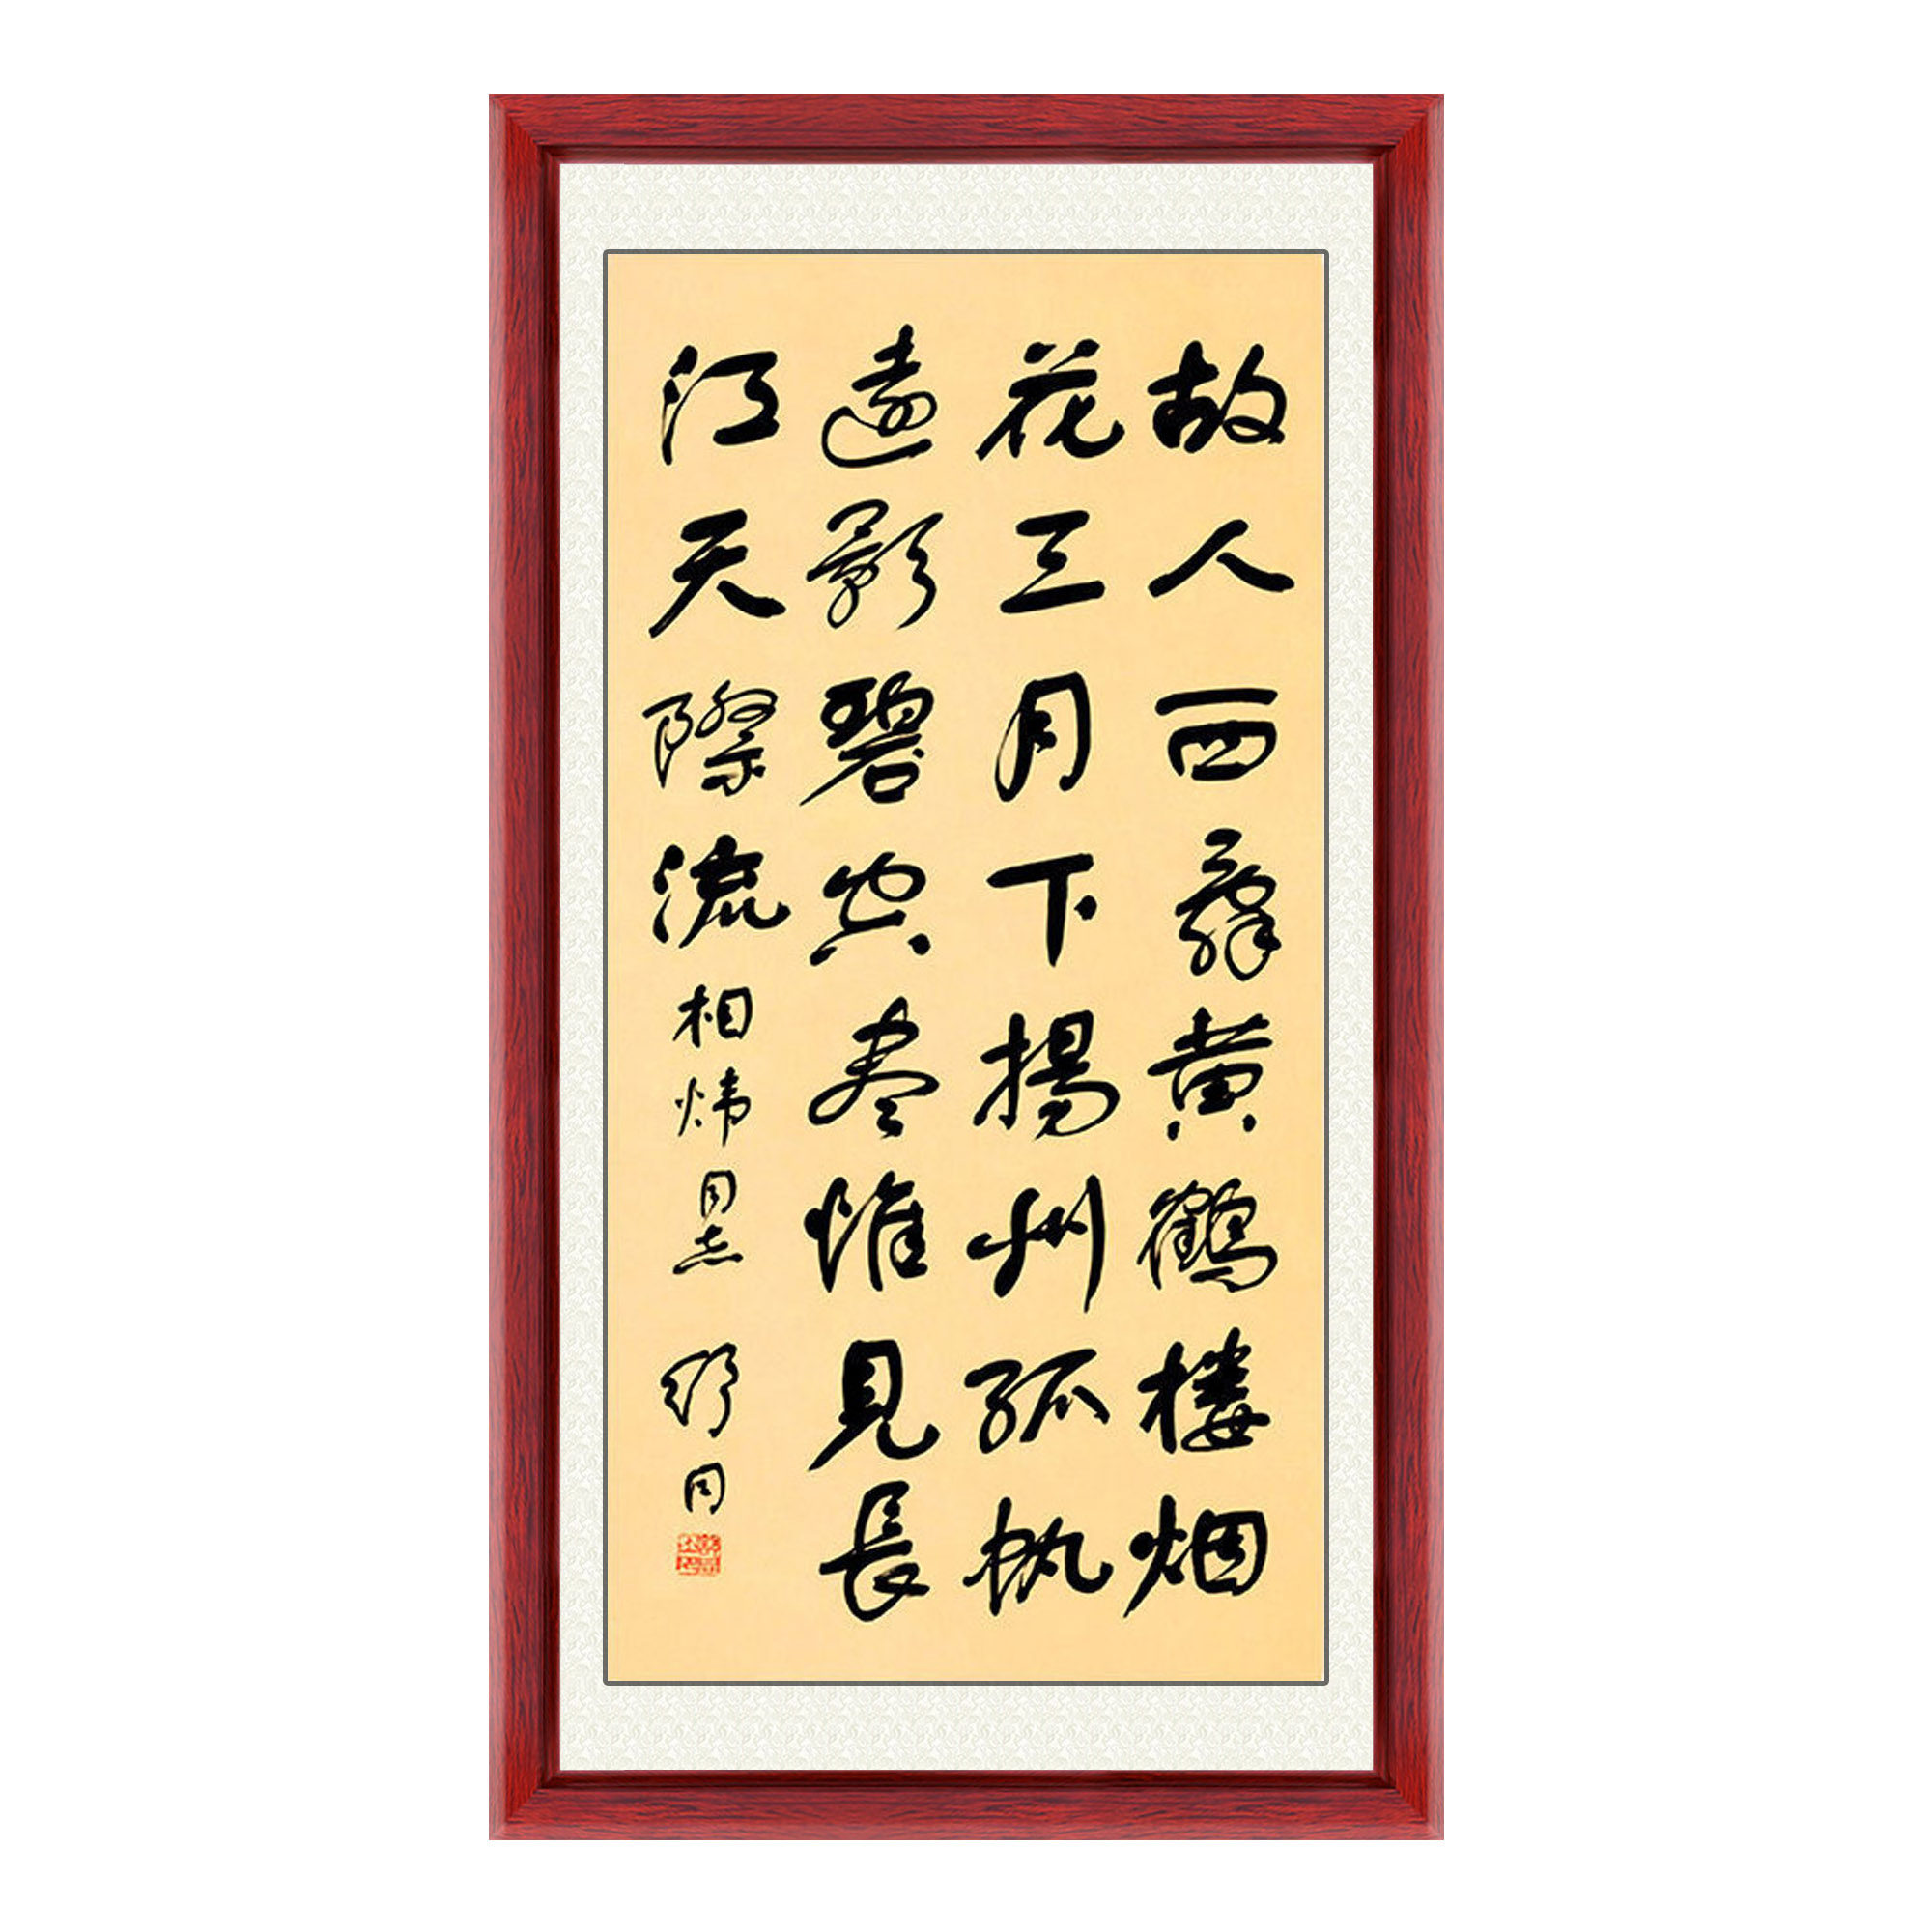 故人西辭黄鶴楼烟
花三月下揚州孤帆
遠影碧空尽惟見長
江天際流相炜同志 舒同